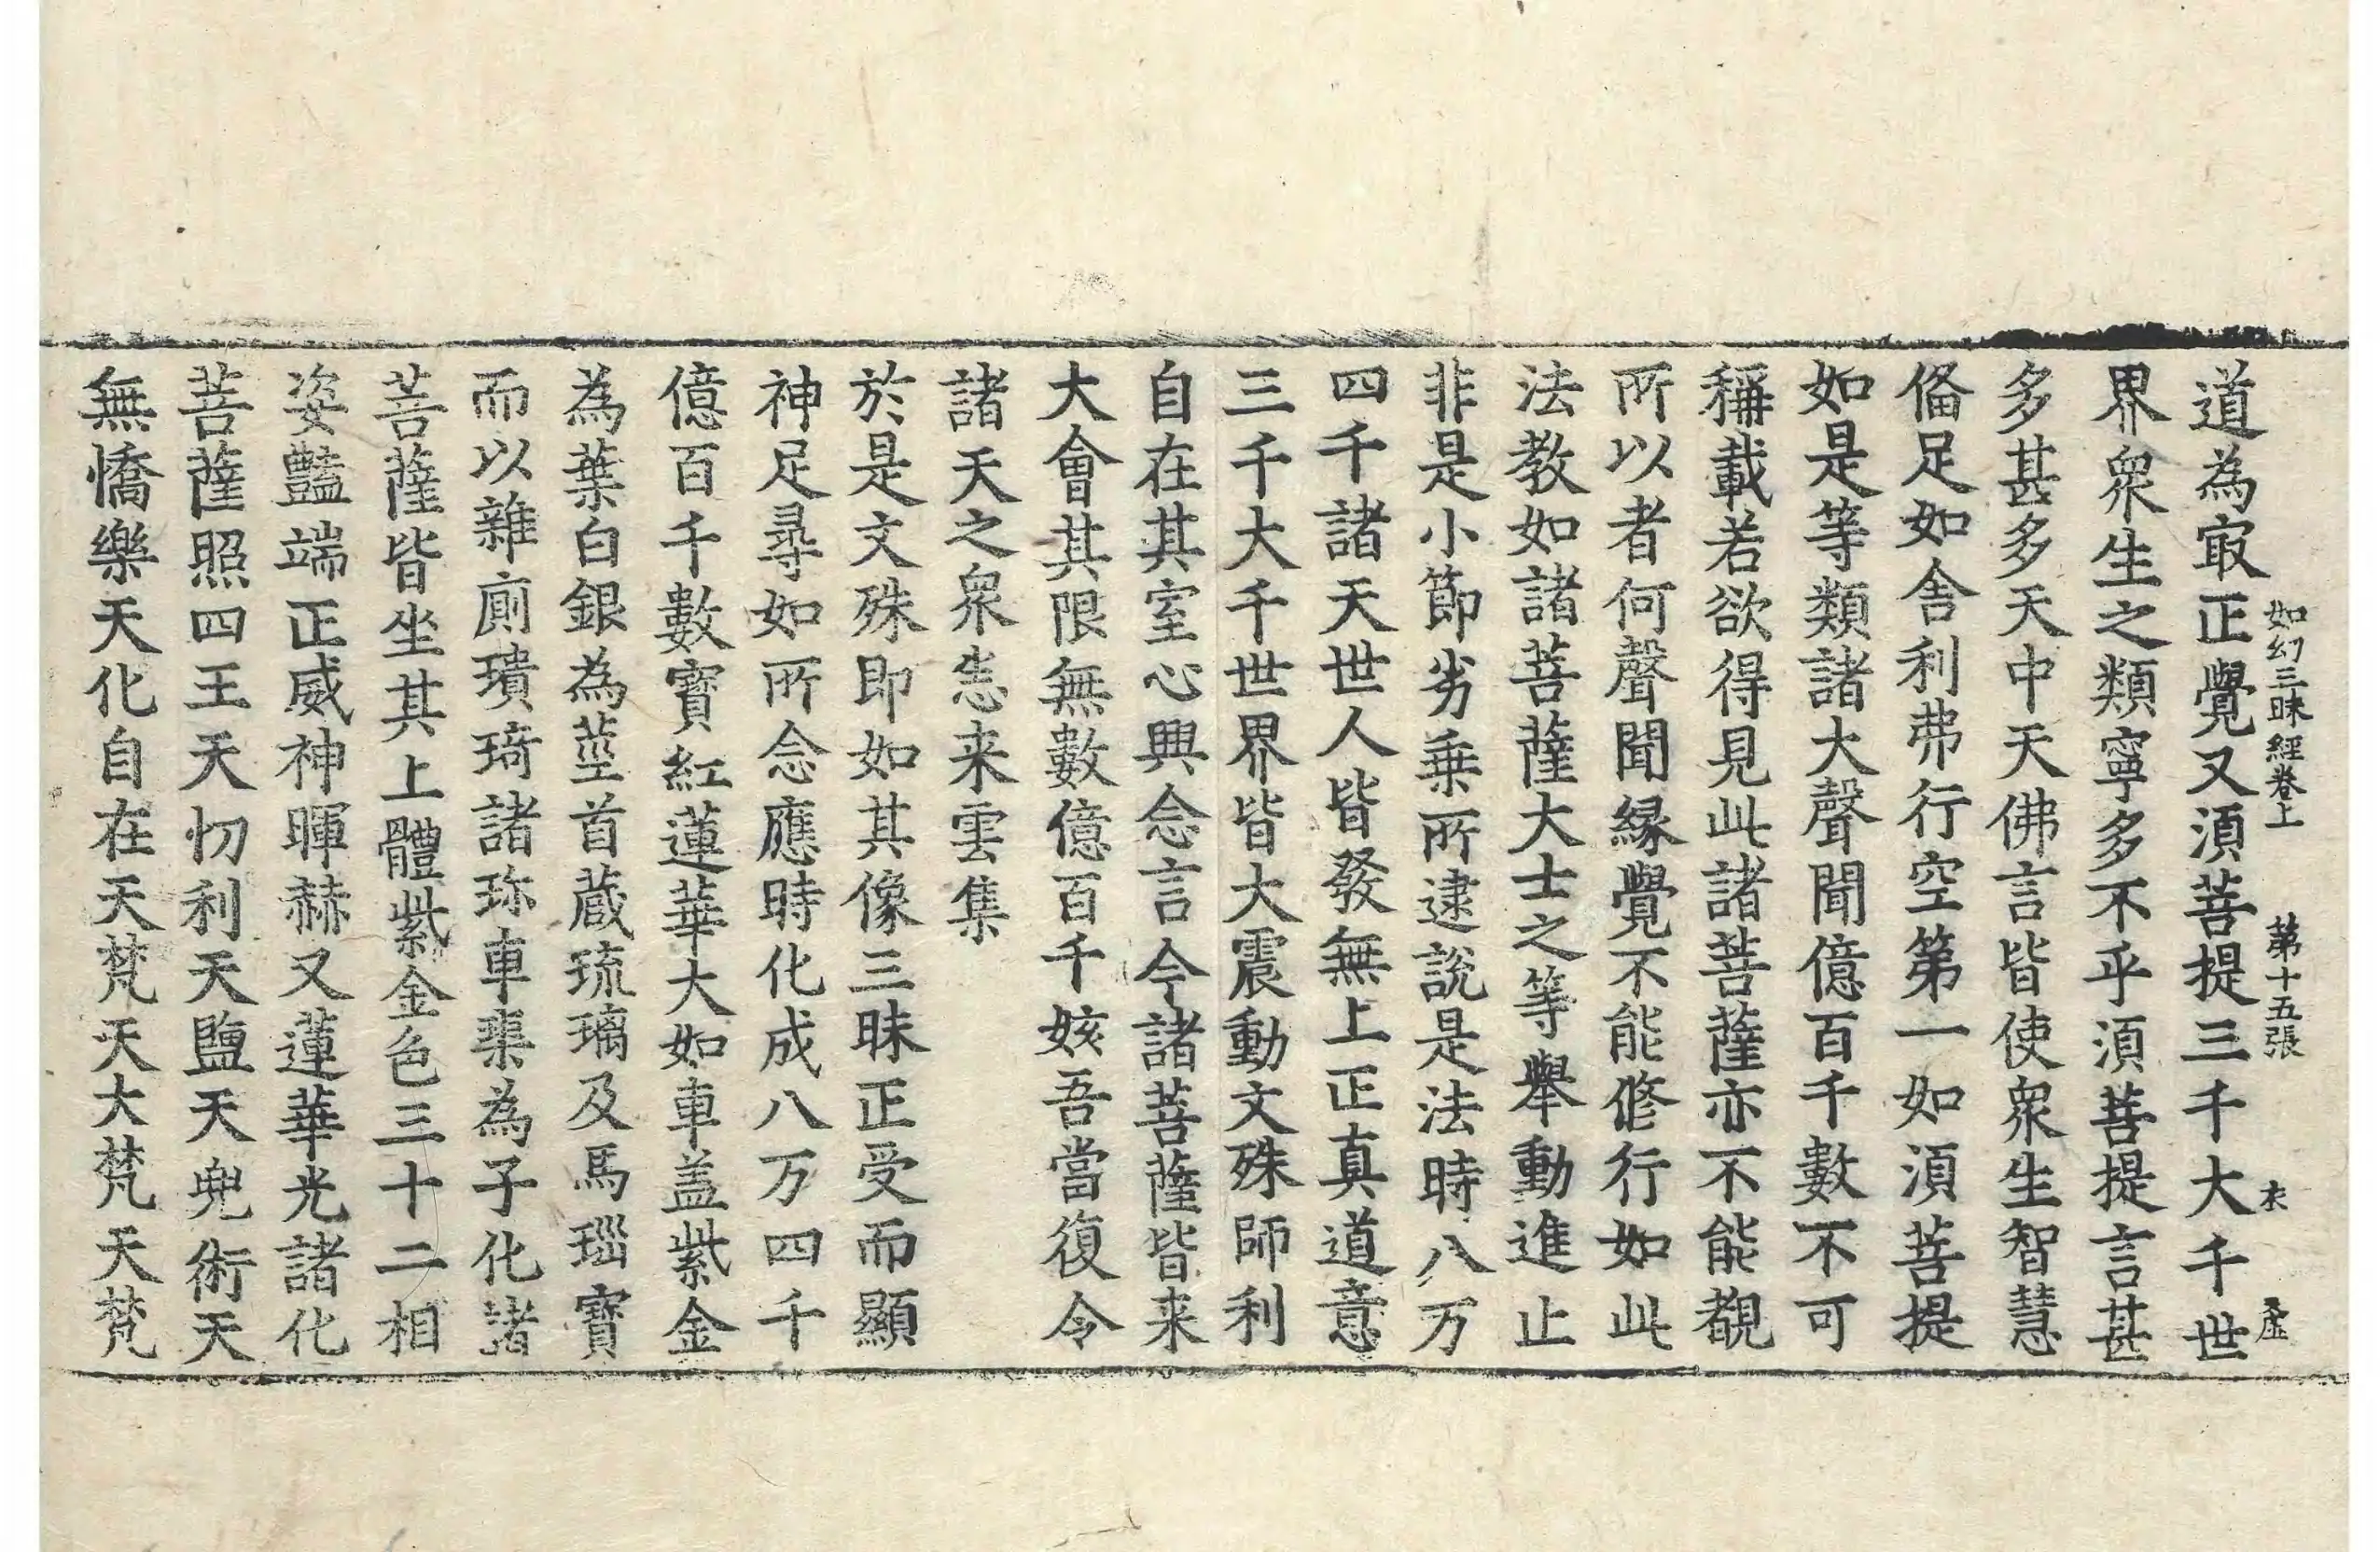 道為㝡正覺又湏菩提三千大千世
如幻三昧經卷上　第十五張　衣
界衆生之類寧多不乎湏菩提言甚
多甚多天中天佛言皆使衆生智慧
俻足如舍利弗行空第一如湏菩提
如是等類諸大聲聞億百千數不可
稱載若欲得見此諸菩薩亦不能覩
所以者何聲聞緣覺不能修行如此
法教如諸菩薩大士之等舉動進止
非是小節劣乗所逮說是法時八万
四千諸天世人皆發無上正真道意
三千大千世界皆大震動文殊師利
自在其室心興念言今諸菩薩皆来
大會其限無數億百千姟吾當復令
諸天之衆恙来雲集
於是文殊即如其像三昧正受而顯
神足尋如所念應時化成八万四千
億百千數寶紅蓮華大如車盖紫金
為葉白銀為莖首蔵琉璃及馬瑙寶
而以雜廁瓄琦諸珎車璖為子化諸
菩薩皆坐其上體紫金色三十二相
姿豔端正威神暉赫又蓮華光諸化
菩薩照四王天忉利天鹽天兜術天
無憍樂天化自在天梵天大梵天梵